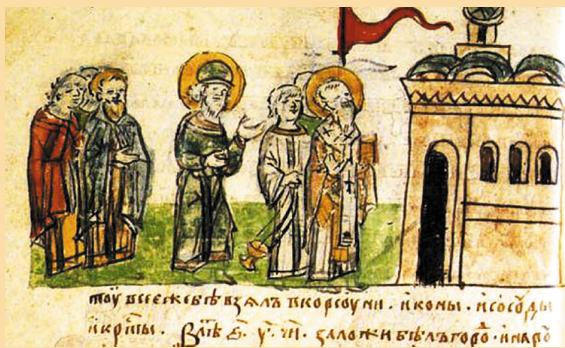 тоу всеежебѣ взялъ вкорсоуни . иконы . исосоуды
икрⷭ҇ты . Влѣⷮ ҂ѕ҃ . у҃ . ч҃и . заложи бѣлъгороⷣ . инаро